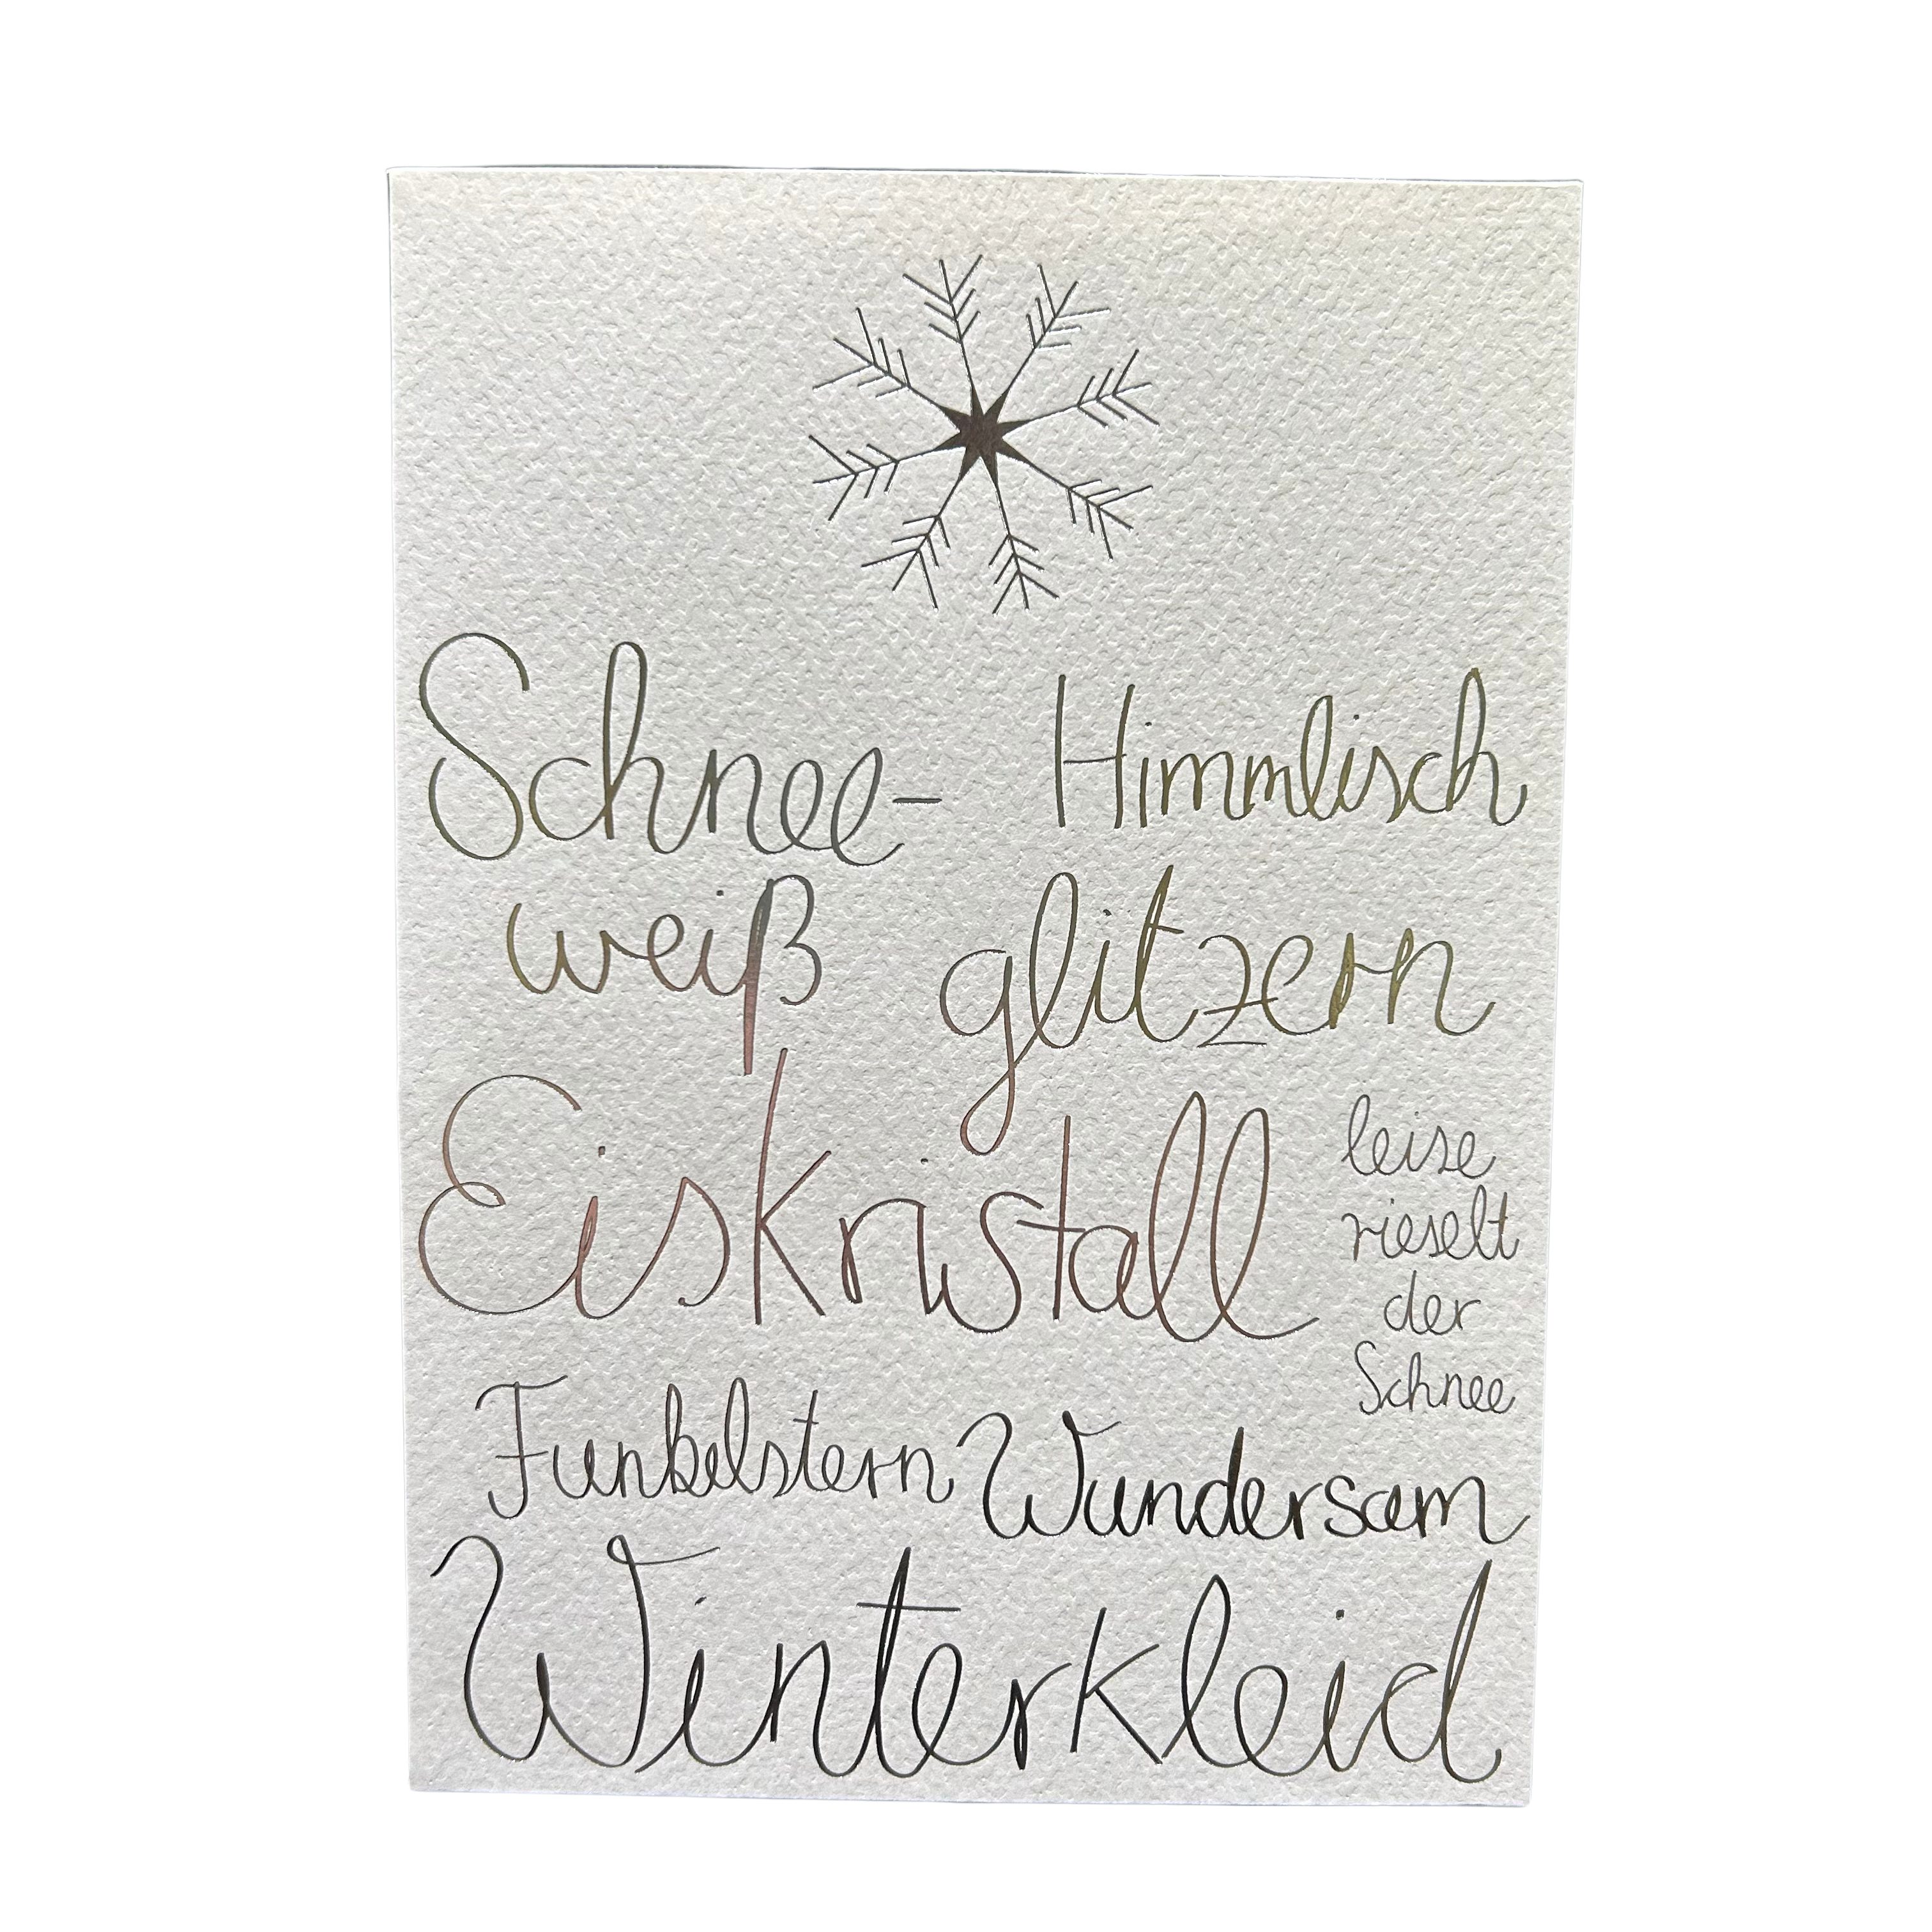 Schnee-
weiß
Himmlisch
glitzern
Eiskristall
leise
rieselt
der
Schnee
Funkelstern
Wundersam
Winterkleid